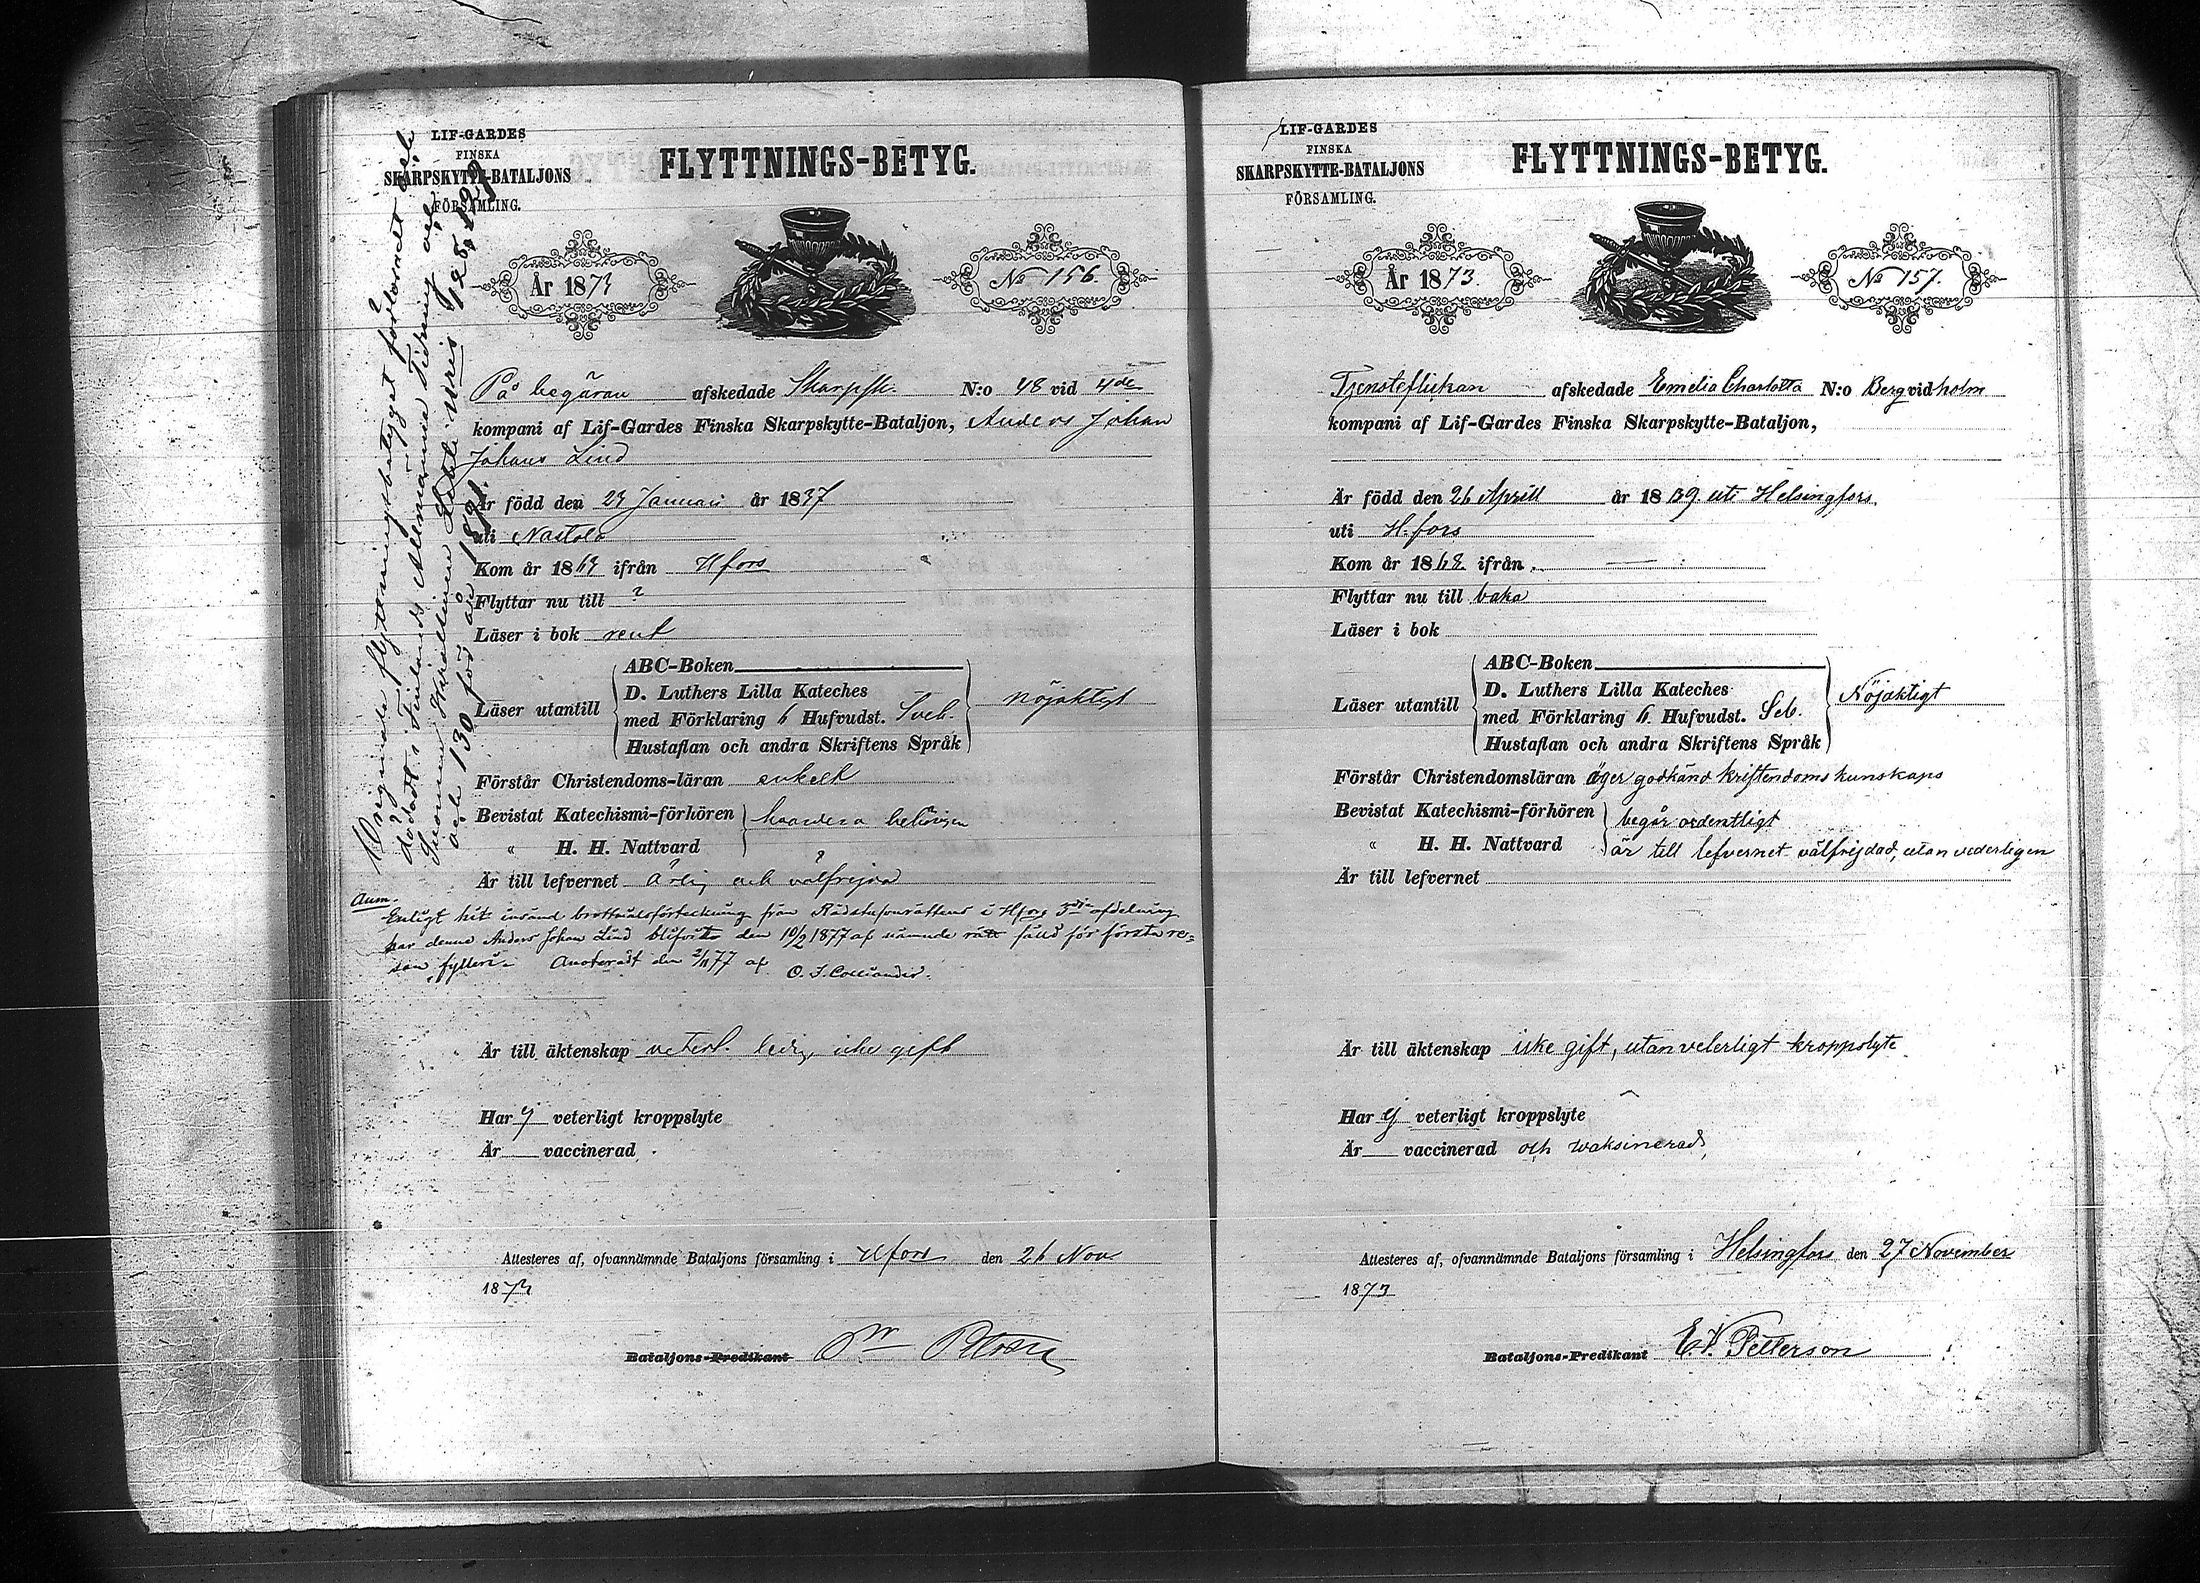 LIF-GARDES
FINSKA
SKARPSKYTTE-BATALJONS
FÖRSAMLING.
FLYTTNINGS-BETYG.
År 1873
No 156.
På begäran afskedade Skarpsk. N:o 48 vid 4de
kompani af Lif-Gardes Finska Skarpskytte-Bataljon, Anders Johan
Johans Lind
Är född den 23 Januari år 1837
uti Nastola
Kom år 1863 ifrån Hfors
Flyttar nu till ?
Läser i bok rent
ABC-Boken
D. Luthers Lilla Kateches
Läser utantill med Förklaring 6 Hufvudst. Sveb. nöjaktigt
Hustaflan och andra Skriftens Språk
Förstår Christendoms-läran enkelt
Bevistat Katechismi-förhören
" H. H. Nattvard
Är till lefvernet ärlig och välfrejdad
Anm.
Enligt hit insänd brottmålsförteckning från Rådstufvurättens i Hfors 3dje afdelning
har denne Anders Johan Lind blifvit den 10/2 1877 af nämnde rätt fälld för första re-
san fylleri. Anoteradt den 77 af O. I. Colliander.
Är till äktenskap veterl. ledig, icke gift
Har ej veterligt kroppslyte
Är vaccinerad
Attesteres af, ofvannämnde Bataljons församling i Hfors den 26 Nov
1873
Bataljons-Predikant
Originale flyttningsbetyget förlorat och
dödadt i Finlands Allmänna Tidning och
Suomen Wirallinen Lehti N:ris 128, 129
och 130 för år 1891.
LIF-GARDES
FINSKA
SKARPSKYTTE-BATALJONS
FÖRSAMLING.
FLYTTNINGS-BETYG.
År 1873.
No 157.
Tjensteflickan afskedade Emelia Charlotta N:o Berg vid holm
kompani af Lif-Gardes Finska Skarpskytte-Bataljon,
Är född den 26 Aprill år 1839 uti Helsingfors
uti H:fors
Kom år 1868 ifrån
Flyttar nu till baka
Läser i bok
ABC-Boken
D. Luthers Lilla Kateches
Läser utantill med Förklaring 6. Hufvudst. Seb. Nöjaktigt
Hustaflan och andra Skriftens Språk
Förstår Christendomsläran äger godkänd kristendoms kunskaps
Bevistat Katechismi-förhören begår ordentligt
" H. H. Nattvard är till lefvernet välfrejdad, utan vederligen
Är till lefvernet
Är till äktenskap iske gift, utan veterligt kroppslyte
Har ej veterligt kroppslyte
Är vaccinerad och waksinerad,
Attesteres af, ofvannämnde Bataljons församling i Helsingfors den 27 November
1873
Bataljons-Predikant E. V. Petterson